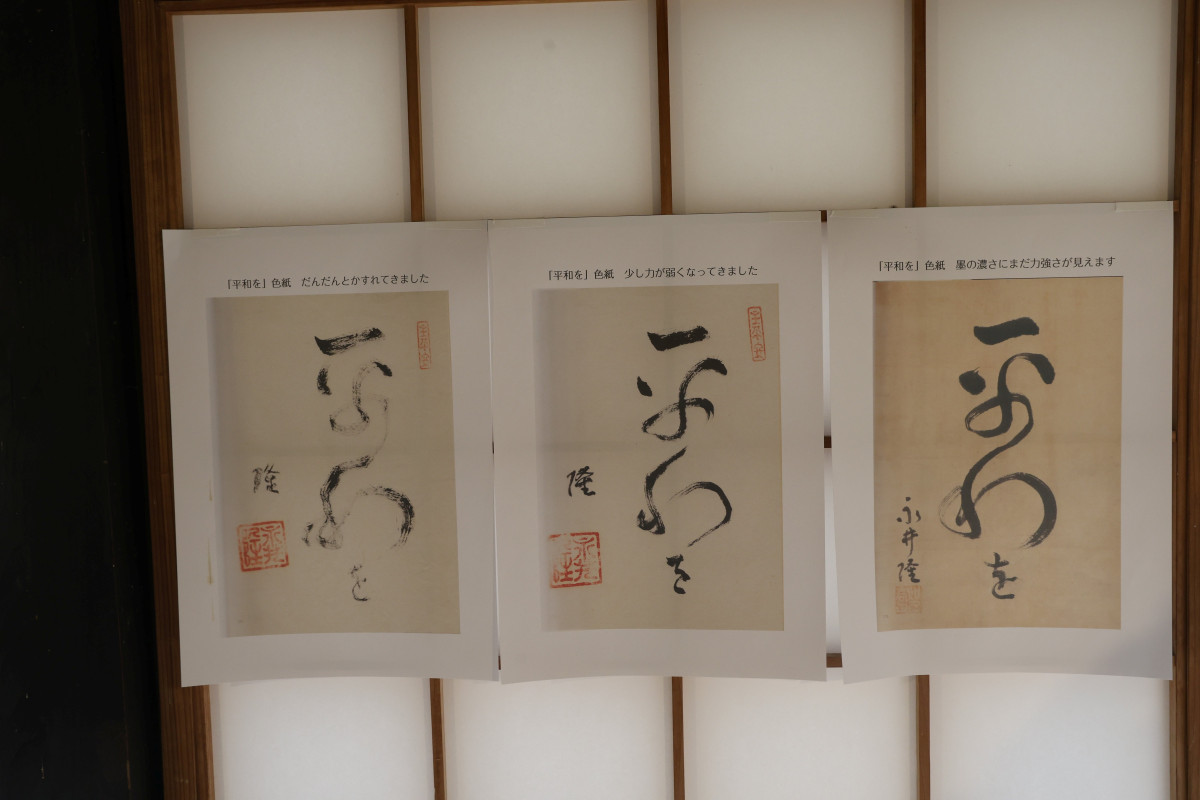 「平和を」色紙　だんだんとかすれてきました
平和を
隆
「平和を」色紙　少し力が弱くなってきました
平和を
隆
「平和を」色紙　墨の濃さにまだ力強さが見えます
平和を
永井隆